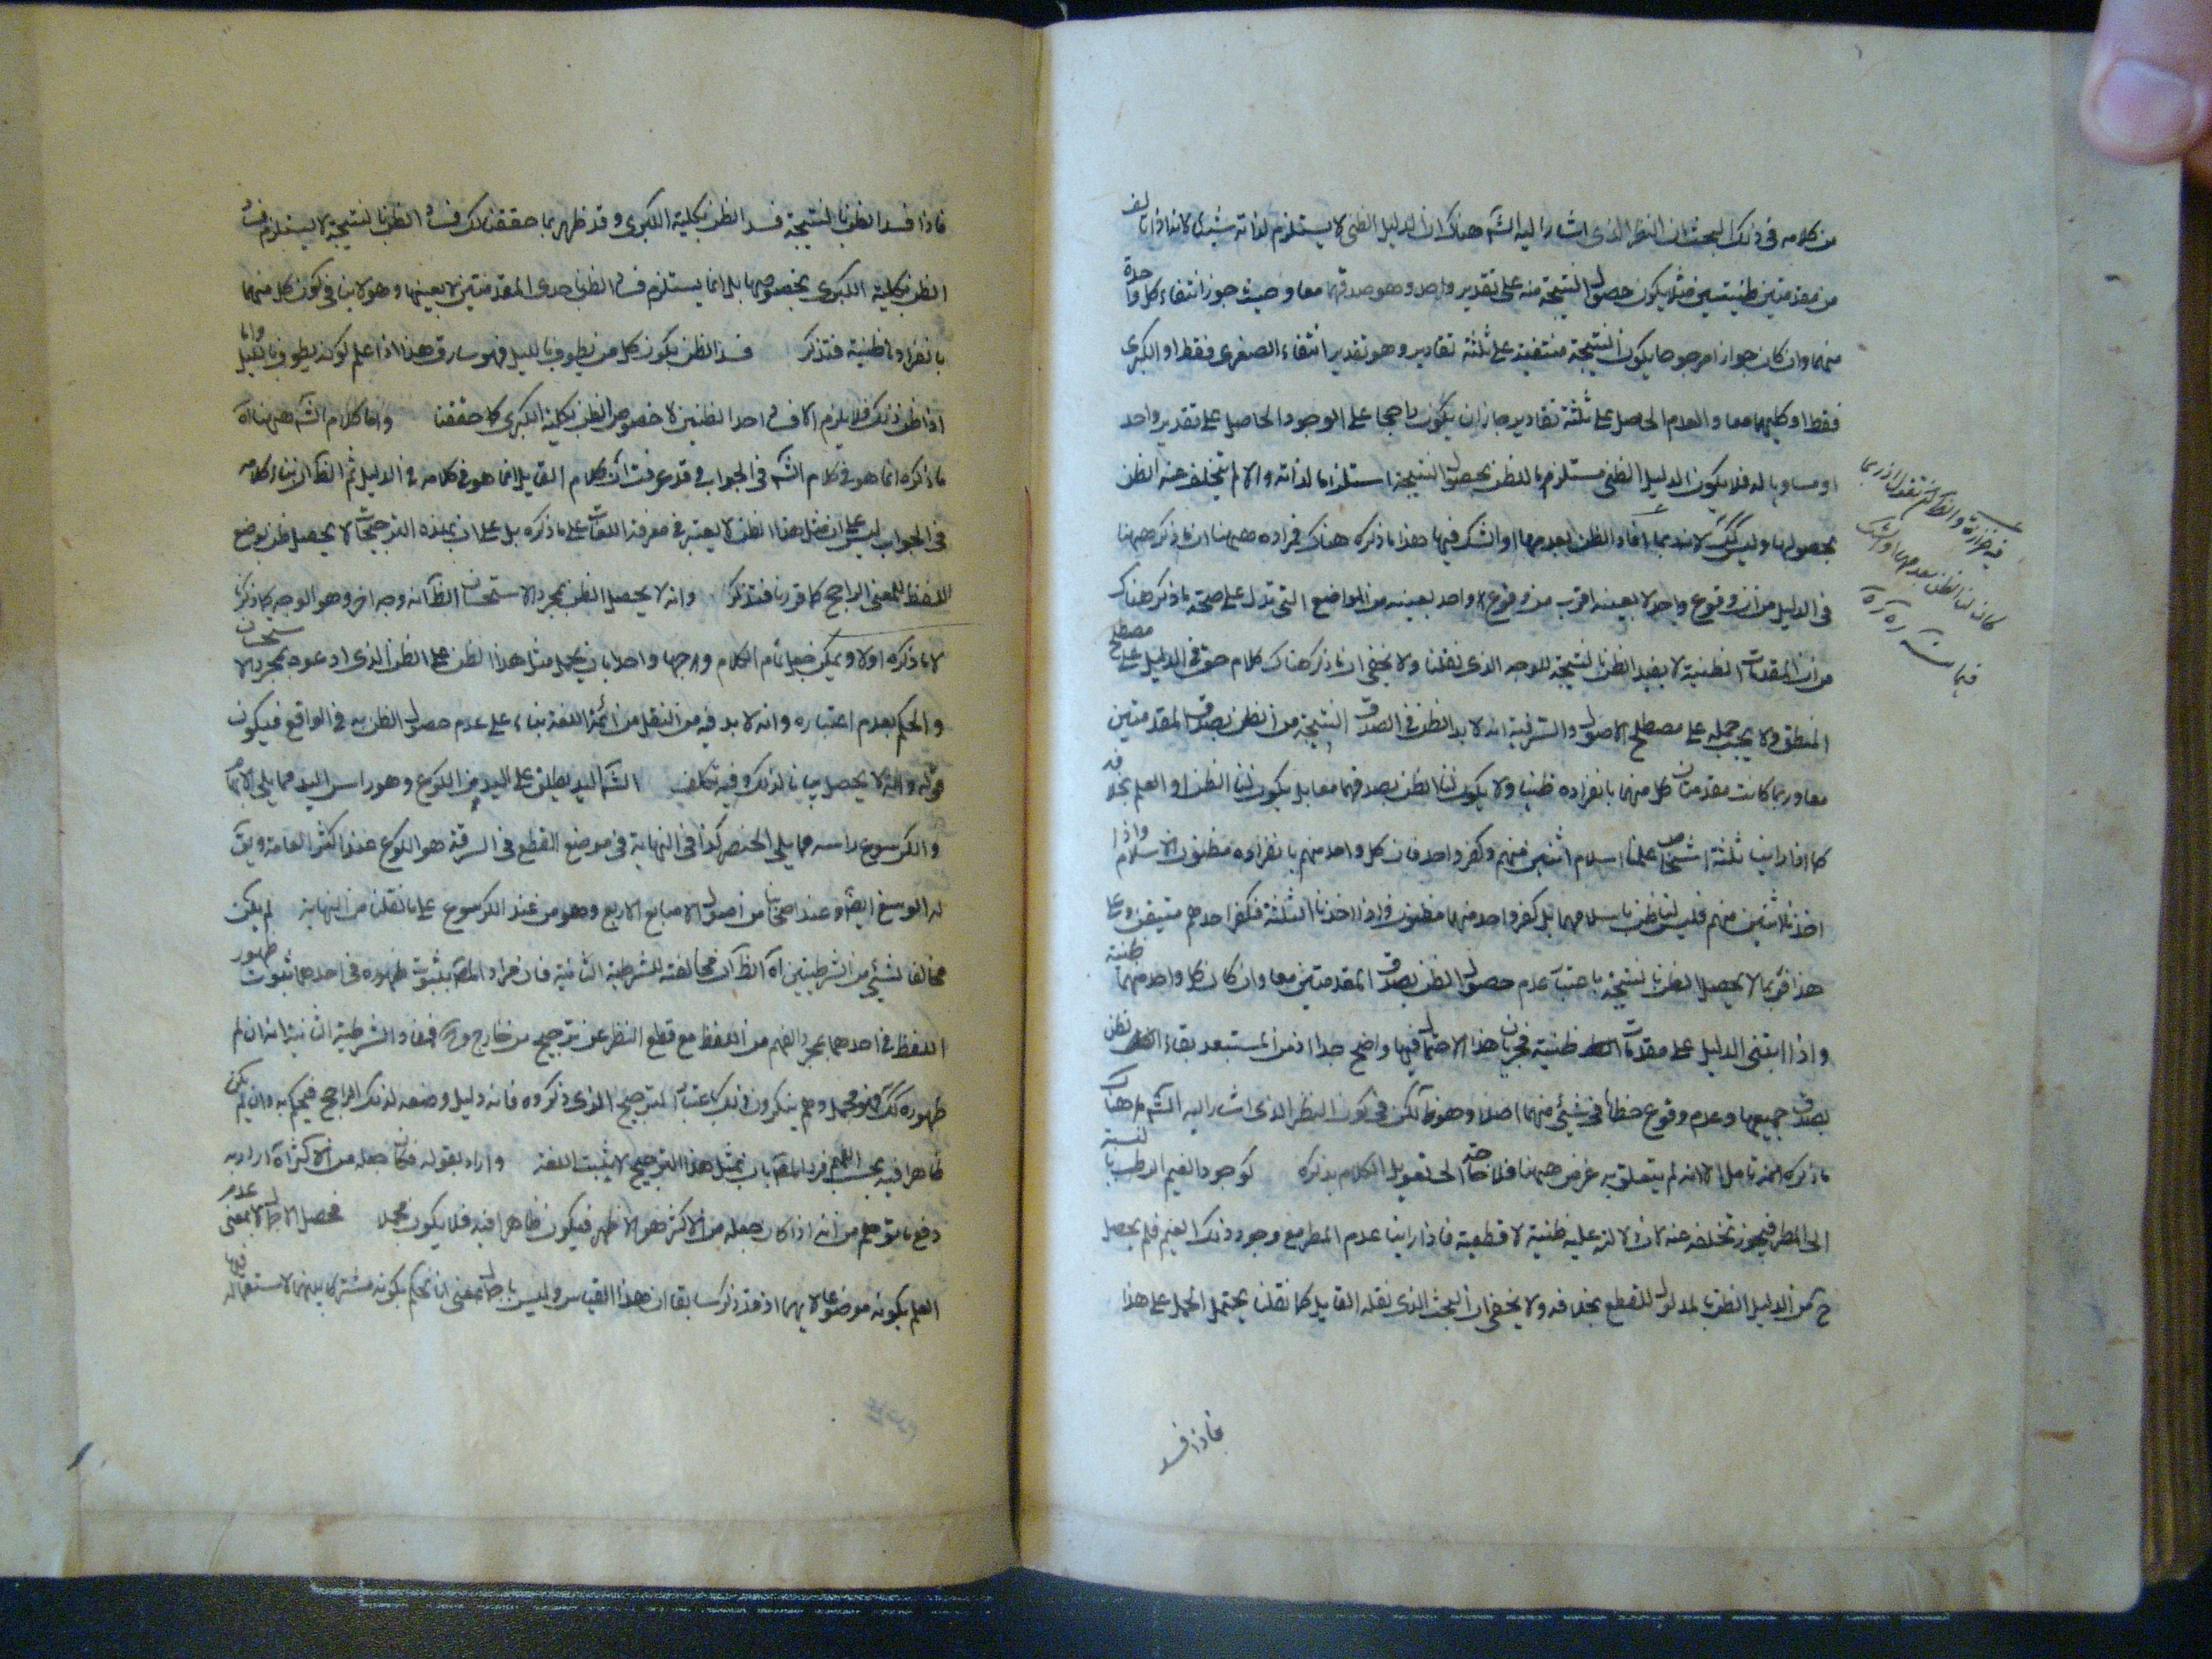 من كلامه فى ذلك البحث ان النظر الذى اشار اليه الشه هناك ان الدليل الظنى لا يستلزم لذاته شيئا لانه اذا تالف
من مقدمتين ظنيتين مثلا يكون حصول النتيجة منه على تقدير واحد وهو صدقهما معا وحيث جوز انتفاء كل واحدة
منهما وان كان جوازا مرجوحا يكون النتيجة منتفية على ثلثة تقادير وهو تقدير انتفاء الصغرى فقط او الكبرى
فقط او كليهما معا والعدم الحاصل على ثلثة تقادير جاز ان يكون راجحا على الوجود الحاصل على تقدير واحد
او مساويا له فلا يكون الدليل الظنى مستلزما للظن بحصول النتيجة استلزاما لذاته والا لم يتخلف عنه الظن
بحصولها وليس كك لانه ربما افاد الظن بعدمها او الشك فيها هذا ما ذكره هناك فمراده ههنا ان ما ذكر ههنا
فى الدليل من ان وقوع واحد لا بعينه اقرب من وقوع واحد بعينه من المواضع التى تدل على صحة ما ذكر هناك
من ان المقدمات الظنية لا يفيد الظن بالنتيجة للوجه الذى نقلنا ولا يخفى ان ما ذكر هناك كلام حق فى الدليل على مصطلح
المنطق ولا يجب حمله على مصطلح الاصول والسر فيه انه لا بد للظن فى الصدق النتيجة من الظن بصدق المقدمتين
معا وربما كانت مقدمتان كل منهما بانفراده ظنيا ولا يكون لنا الظن بصدقهما معا بل يكون لنا الظن او العلم بخلافه
كما اذا راينا ثلثة اشخاص علمنا اسلام اثنين منهم وكفر واحد فان كل واحد منهم بانفراده مظنون الاسلام واذا
اخذنا اثنين منهم فليس لنا ظن باسلامهما بل كفر واحد منهما مظنون واذا اخذنا الثلثة فكفر احدهم متيقن وعلى
هذا فربما لا يحصل الظن بالنتيجة باعتبار عدم حصول الظن بصدق المقدمتين معا وان كان كل واحد منهما ظنية
واذا ابتنى الدليل على مقدمات ظنية فجريان هذا الاحتمال فيها واضح جدا اذ من المستبعد بقاء الظن
بصدق جميعها وعدم وقوع خطأ فى شىء منهما اصلا وهو ظ لكن فى كون النظر الذى اشار اليه الشه هناك
ما ذكره المه تامل الا انه لم يتعلق به غرض ههنا فلا حاجة الى تطويل الكلام بذكره كوجود الغيم الرطب بالنسبة
الى المطر فيجوز تخلفه عنه لان دلالته عليه ظنية لا قطعية فاذا راينا عدم المطر مع وجود ذلك الغيم فلم يحصل
ح من الدليل الظن بالمدلول للقطع بخلافه ولا يخفى ان البحث الذى نقله القايل كما نقلنا يحتمل الحمل على هذا
فاذا فسد
فاذا فسد الظن بالنتيجة فسد الظن بكلية الكبرى وقد ظهر بما حققنا لك فساد الظن بالنتيجة لا يستلزم فساد
الظن بكلية الكبرى بخصوصها بل انما يستلزم فساد الظن باحدى المقدمتين لا بعينها وهو لا ينافى كون كل منهما
بانفراده ظنية فتذكر فسد الظن بكون كل من يطوف بالليل فهو سارق هذا اذا علم كونه يطوف بالليل واما
اذا ظن ذلك فلا يلزم الا فساد احد الظنين لا خصوص الظن بكلية الكبرى كما حققنا واما كلام الشه ههنا اه
ما ذكره انما هو فى كلام الشه فى الجواب وقد عرفت ان كلام القايل انما هو فى كلامه فى الدليل ثم الظ ان بناء كلامه
فى الجواب ليس على ان مثل هذا الظن لا يعتبر فى معرفة اللغات على ما ذكره بل على ان بهذه الترجيحات لا يحصل ظن بوضع
اللفظ للمعنى الراجح كما قررنا فتذكر وانه لا يحصل الظن بمجرد الاستحسان الظ انه وجه اخر وهو الوجه كما ذكرنا
لا ما ذكره اولا ويمكن جعل تمام الكلام وجها واحدا بان يحمل مثل هذا الظن على الظن الذى ادعوه بمجرد الاستحسان
والحكم بعدم اعتباره وانه لا بد فيه من النقل من ائمة اللغة بناء على عدم حصول الظن به فى الواقع فيكون
قوله وانه لا يحصل بيانا لذلك وفيه تكلف الشه اليد يطلق على اليد من الكوع وهو راس اليد مما يلى الابهام
والكرسوع راسه مما يلى الخنصر كذا فى النهاية فى موضع القطع فى السرقة هو الكوع عند اكثر العامة ويق
له الرسغ ايضا وعند اصحابنا من اصول الاصابع الاربع وهو من عند الكرسوع على ما نقلنا من النهاية لم يكن
مخالفا لشىء من الشرطيتين اه الظ ان مخالفته للشرطية الثانية فان مراد المه بثبوت ظهوره فى احدهما ثبوت ظهور
اللفظ فى احدهما بمجرد الفهم من اللفظ مع قطع النظر عن ترجيح من خارج وح فمفاد الشرطية الثانية انه ان لم يكن
ظهوره كك فهو مجمل وهم ينكرون ذلك باعتبار الترجيح الذى ذكروه فانه دليل وضعه لذلك الراجح فيحكم به وان لم يكن
ظاهرا فيه بحسب الفهم فرد المه بان مثل هذا الترجيح لا يثبت اللغة واراد بقوله فكان جعله من الاكثر اه اراد به
دفع ما يتوهم من انه اذا كان جعله من الاكثر هو الاظهر فيكون ظاهرا فيه فلا يكون مجملا فحصل الاجمال لا بمعنى عدم
العلم بكونه موضوعا لايهما اذ قد ذكر سابقا ان هذا القياس وليس باجمال بمعنى انا نحكم بكونه مشتركا بينهما لاستعماله فيهما